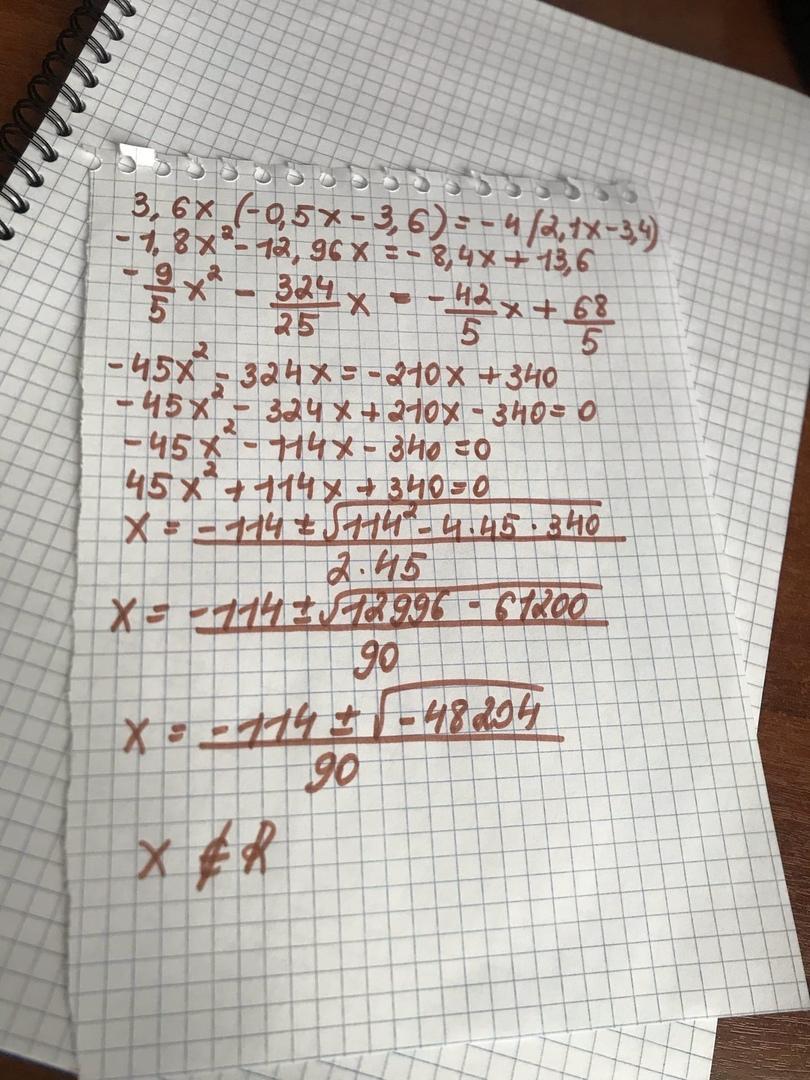 3,6x (-0,5x-3,6)=-4(2,1x-3,4)
-1,8x²-12,96x=-8,4x+13,6
-9/5x² - 324/25x = -42/5x + 68/5
-45x²-324x=-210x+340
-45x²-324x+210x-340=0
-45x²-114x-340=0
45x²+114x+340=0
x = -114±√114²-4·45·340 / 2·45
x = -114±√12996-61200 / 90
x = -114±√-48204 / 90
x ∉ R